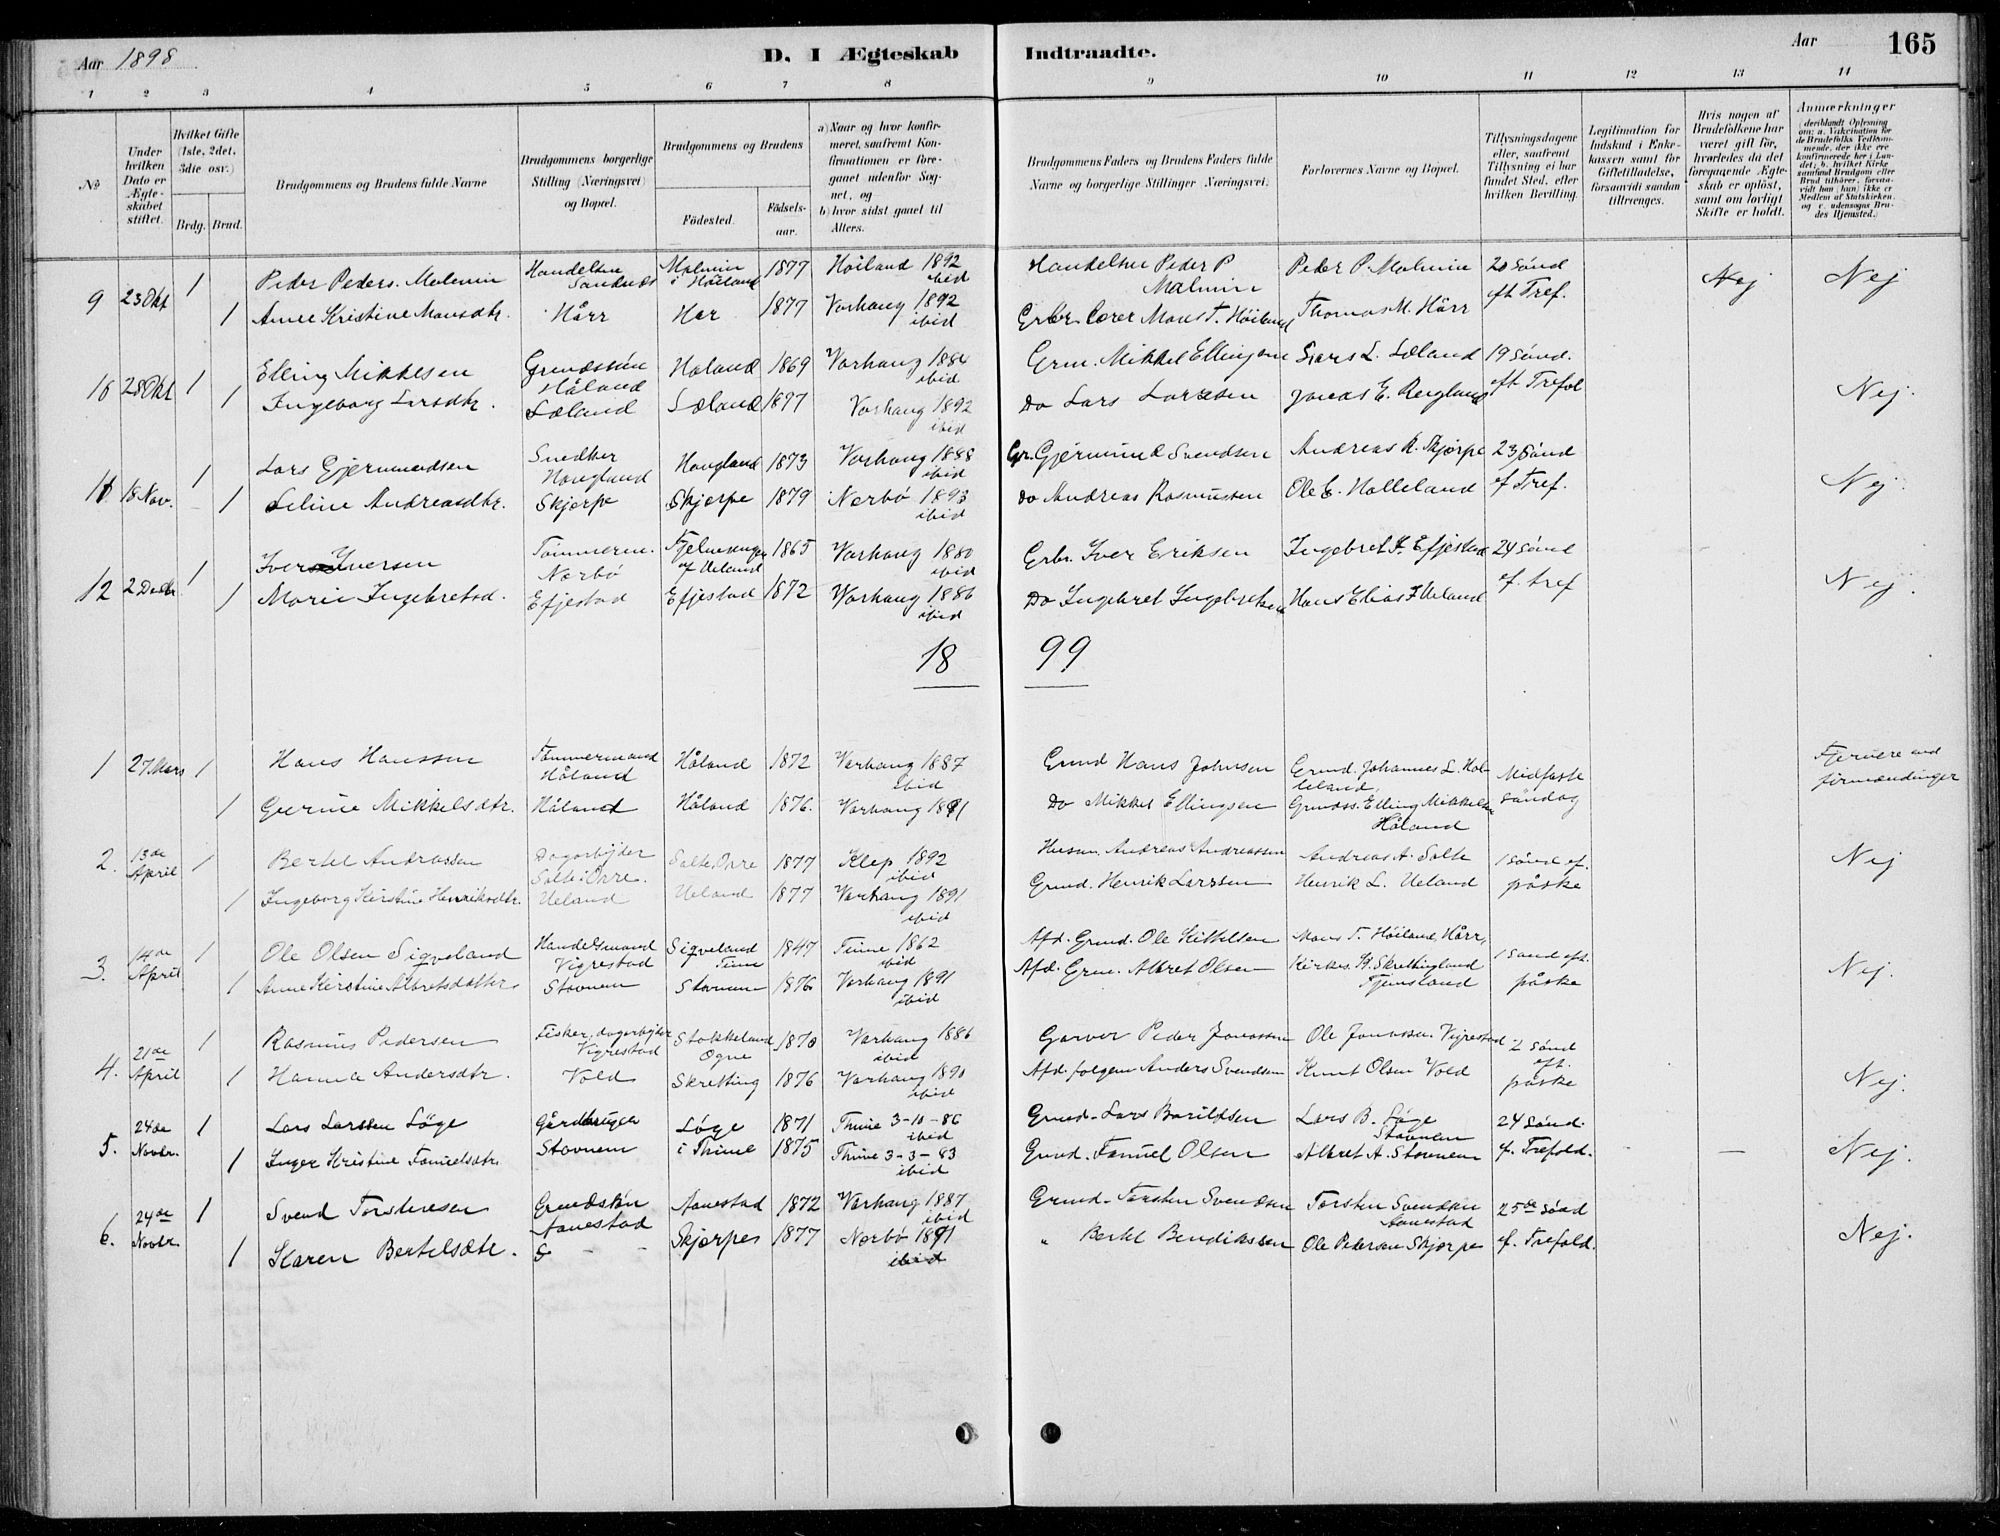 Aar 1898
D. I Ægteskab Indtraadte.
Aar 165
1 2 3 4 5 6 7 8 9 10 11 12 13 14
No
Under hvilken Dato er Ægteskabet stiftet.
Hvilket Gifte (1ste, 2det, 3die osv.)
Brdg. Brud.
Brudgommens og Brudens fulde Navne
Brudgommens borgerlige Stilling (Næringsvei) og Bopæl.
Brudgommens og Brudens
Fødested. Fødselsaar.
a) Naar og hvor konfirmeret, saafremt Konfirmationen er foregaaet udenfor Sognet, og
b) hvor sidst gaaet til Alters.
Brudgommens Faders og Brudens Faders fulde Navne og borgerlige Stillinger (Næringsvei).
Forlovernes Navne og Bopæl.
Tillysningsdagene eller, saafremt Tillysning ei har fundet Sted, efter hvilken Bevilling.
Legitimation for Indskud i Enkekassen samt for Giftetilladelse, forsaavidt saadan tiltrænges.
Hvis nogen af Brudefolkene har været gift før, hvorledes da det foregaaende Ægteskab er opløst, samt om lovligt Skifte er holdt.
Anmærkninger (deriblandt Oplysning om: a. Vakcination for de Brudefolks Vedkommende, der ikke ere konfirmerede her i Landet; b. hvilket Kirkesamfund Brudgom eller Brud tilhører, forsaavidt han (hun) ikke er Medlem af Statskirken, og c. udensogns Brudes Hjemsted.)
9 23 Okt 1 Peder Peders. Malmin Handelsm Sandnes Malmin i Høiland 1877 Høiland 1892 ibid Handelsm Peder P Malmin Peder P. Malmin 20 Sönd Nej Nej
1 Anne Kristine Monsdtr. Hårr Har 1877 Varhaug 1892 ibid Mons T. Høiland Thomas M. Hårr eft Tref.
10 28 Okt 1 Elling Mikkelsen Grundesøn Håland Haland 1869 Varhaug 1884 ibid Grm. Mikkel Ellingsen Lars L. Læland 19 Sönd.
1 Ingeborg Larsdtr. Læland Læland 1877 Varhaug 1892 ibid Do Lars Larssen Jonas E. Reigland eft Trefol Nej.
11 18 Nov. 1 Lars Gjermundsen Snedker Haugland Haugland 1873 Varhaug 1888 ibid Gr. Gjermund Svendsen Andreas R. Skjørpe 23 Sönd
1 Seline Andreasdtr. Skjærpe Skjærpe 1879 Nærbø 1893 ibid Do Andreas Rasmussen Ole E. Holleland ef Tref. Nej
12 2 Decbr. 1 Iver Iversen Tømmerm. Nærbø af Ueland 1865 Varhaug 1880 ibid Erbr. Iver Eriksen Ingebret I. Efjestad 24 Sönd
1 Marie Ingebretsd. Efjestad Efjestad 1872 Varhaug 1886 ibid Do Ingebret Ingebretsen Hans Elias I Ueland ef. tref Nej.
18 99
1 27 Mars 1 Hans Hanssen Tømmermand Håland Håland 1872 Varhaug 1887 ibid Grund Hans Johnsen Grund. Johannes L. Holleland Midfaste Fjernere end firmændinger
1 Gurine Mikkelsdtr. Håland Håland 1876. Varhaug 1891 Do Mikkel Ellingsen Grundss. Elling Mikkelsen Håland Söndag
2. 13de April 1 Bertel Andreassen Dagarbejder Salte i Orre. Salte, Orre 1877 Klep 1892 ibid Husm. Andreas Andreassen Andreas A. Salte 1 Sönd ef. Nej
1 Ingeborg Kirstine Henriksdtr. Ueland Ueland 1877 Varhaug 1891 ibid Grund. Henrik Larssen Henrik L. Ueland påske
3. 14de April 1 Ole Olsen Sigveland Handelsmand Vigrestad Sigveland Time 1847 Time 1862 ibid Afd. Grund. Ole Kittelsen Mons T. Høiland, Hårr, 1 Sönd eft.
1 Anne Kirstine Albretsdatter Stavnem Stavnem 1876 Varhaug 1891 ibid Afd. Grm. Albret Olsen Kirkes. H. Skrettingland påske Nej.
4. 21de April 1 Rasmus Pedersen Fisker, dagarbejder Vigrestad Stokkeland Ogne 1870 Varhaug 1886 ibid Garver Peder Jonassen Ole Jonassen Vigrestad 2 Sönd
1 Hanna Andersdtr. Vold Skretting 1876 Varhaug 1890 ibid Afd. Anders Svendsen Knut Olsen Vold eft. påske Nej.
5. 24de Novbr. 1 Lars Larssen Löge Gårdbruger Løge 1871 Thime 3-10-86 ibid Grund. Lars Lars B. Løge 24 Sönd.
1 Inger Kristine Tamielsdtr. Stavnem i Thime 1875 Thime 3-3-83 ibid Grund. Olsen Albret A. Stavnem Stavnem ef. Trefold. — Nej.
6. 24de Novbr. 1 Svend Torstensen Grundesøn Aanestad Aanestad 1872 Varhaug 1887 ibid Grund. Torsten Svendsen Torsten Svendsen Aanestad 25de Sönd
1 Karen Bertelsdtr. Skjærpes 1877 Nærbø 1891 ibid " Bertel Bendikssen Ole Pedersen Skjørpe ef. Trefold. Nej.